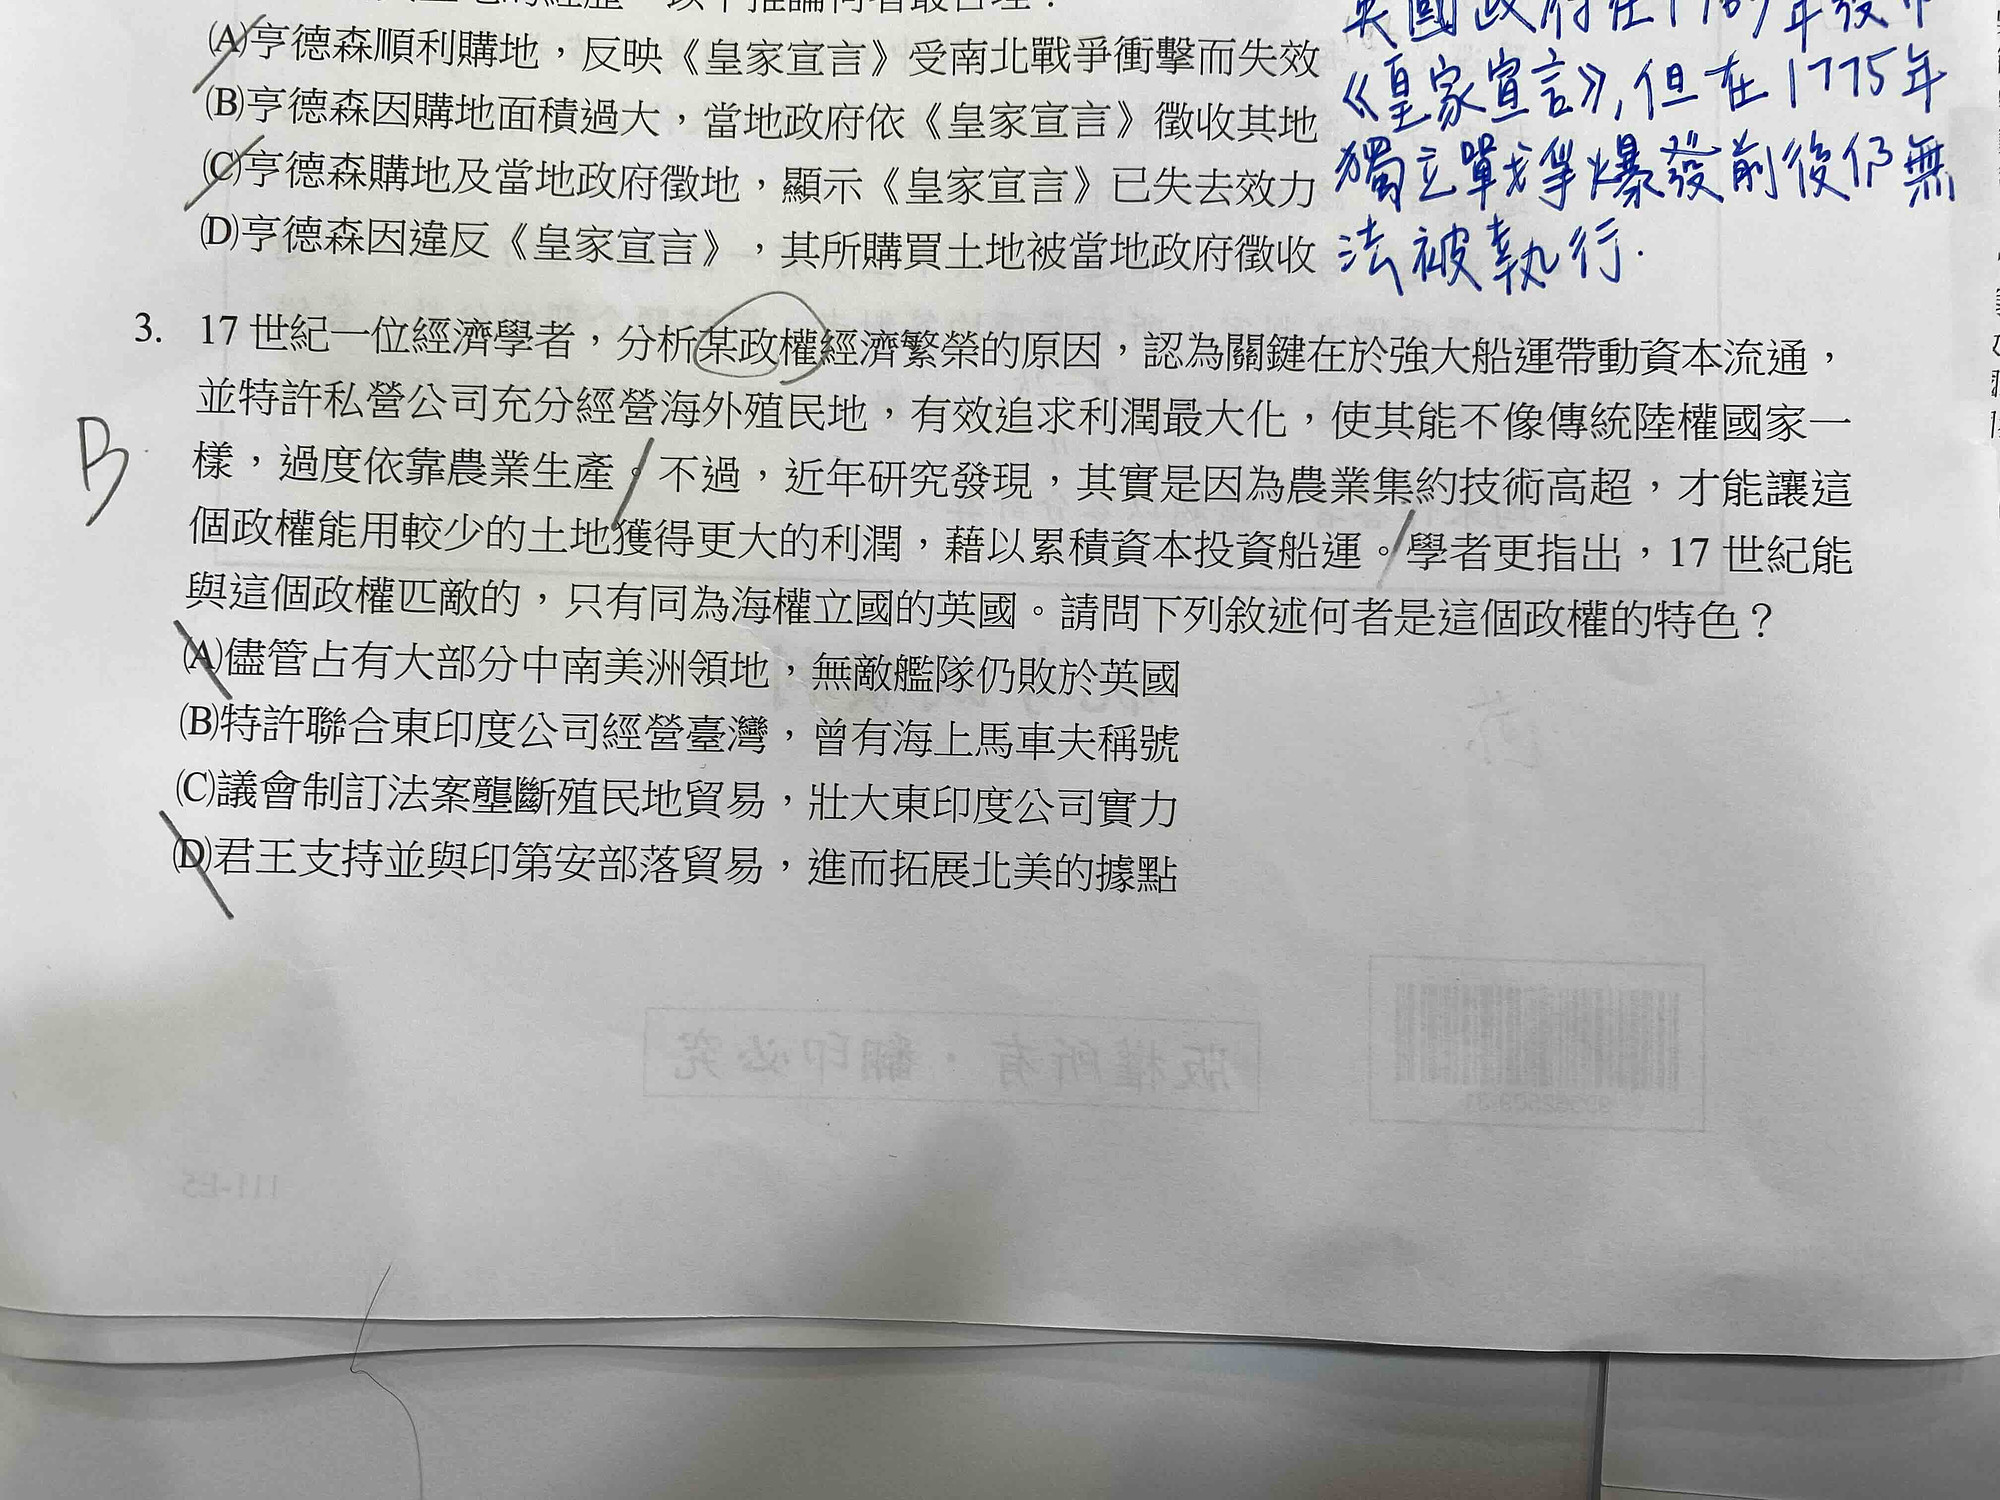 (A)亨德森順利購地，反映《皇家宣言》受南北戰爭衝擊而失效
(B)亨德森因購地面積過大，當地政府依《皇家宣言》徵收其地
(C)亨德森購地及當地政府徵地，顯示《皇家宣言》已失去效力
(D)亨德森因違反《皇家宣言》，其所購買土地被當地政府徵收
《皇家宣言》，但在1775年
獨立戰爭爆發前後仍無
法被執行.
3. 17世紀一位經濟學者，分析某政權經濟繁榮的原因，認為關鍵在於強大船運帶動資本流通，
並特許私營公司充分經營海外殖民地，有效追求利潤最大化，使其能不像傳統陸權國家一
樣，過度依靠農業生產。不過，近年研究發現，其實是因為農業集約技術高超，才能讓這
個政權能用較少的土地獲得更大的利潤，藉以累積資本投資船運。學者更指出，17世紀能
與這個政權匹敵的，只有同為海權立國的英國。請問下列敘述何者是這個政權的特色？
B
(A)儘管占有大部分中南美洲領地，無敵艦隊仍敗於英國
(B)特許聯合東印度公司經營臺灣，曾有海上馬車夫稱號
(C)議會制訂法案壟斷殖民地貿易，壯大東印度公司實力
(D)君王支持並與印第安部落貿易，進而拓展北美的據點
版權所有・翻印必究
111-E5